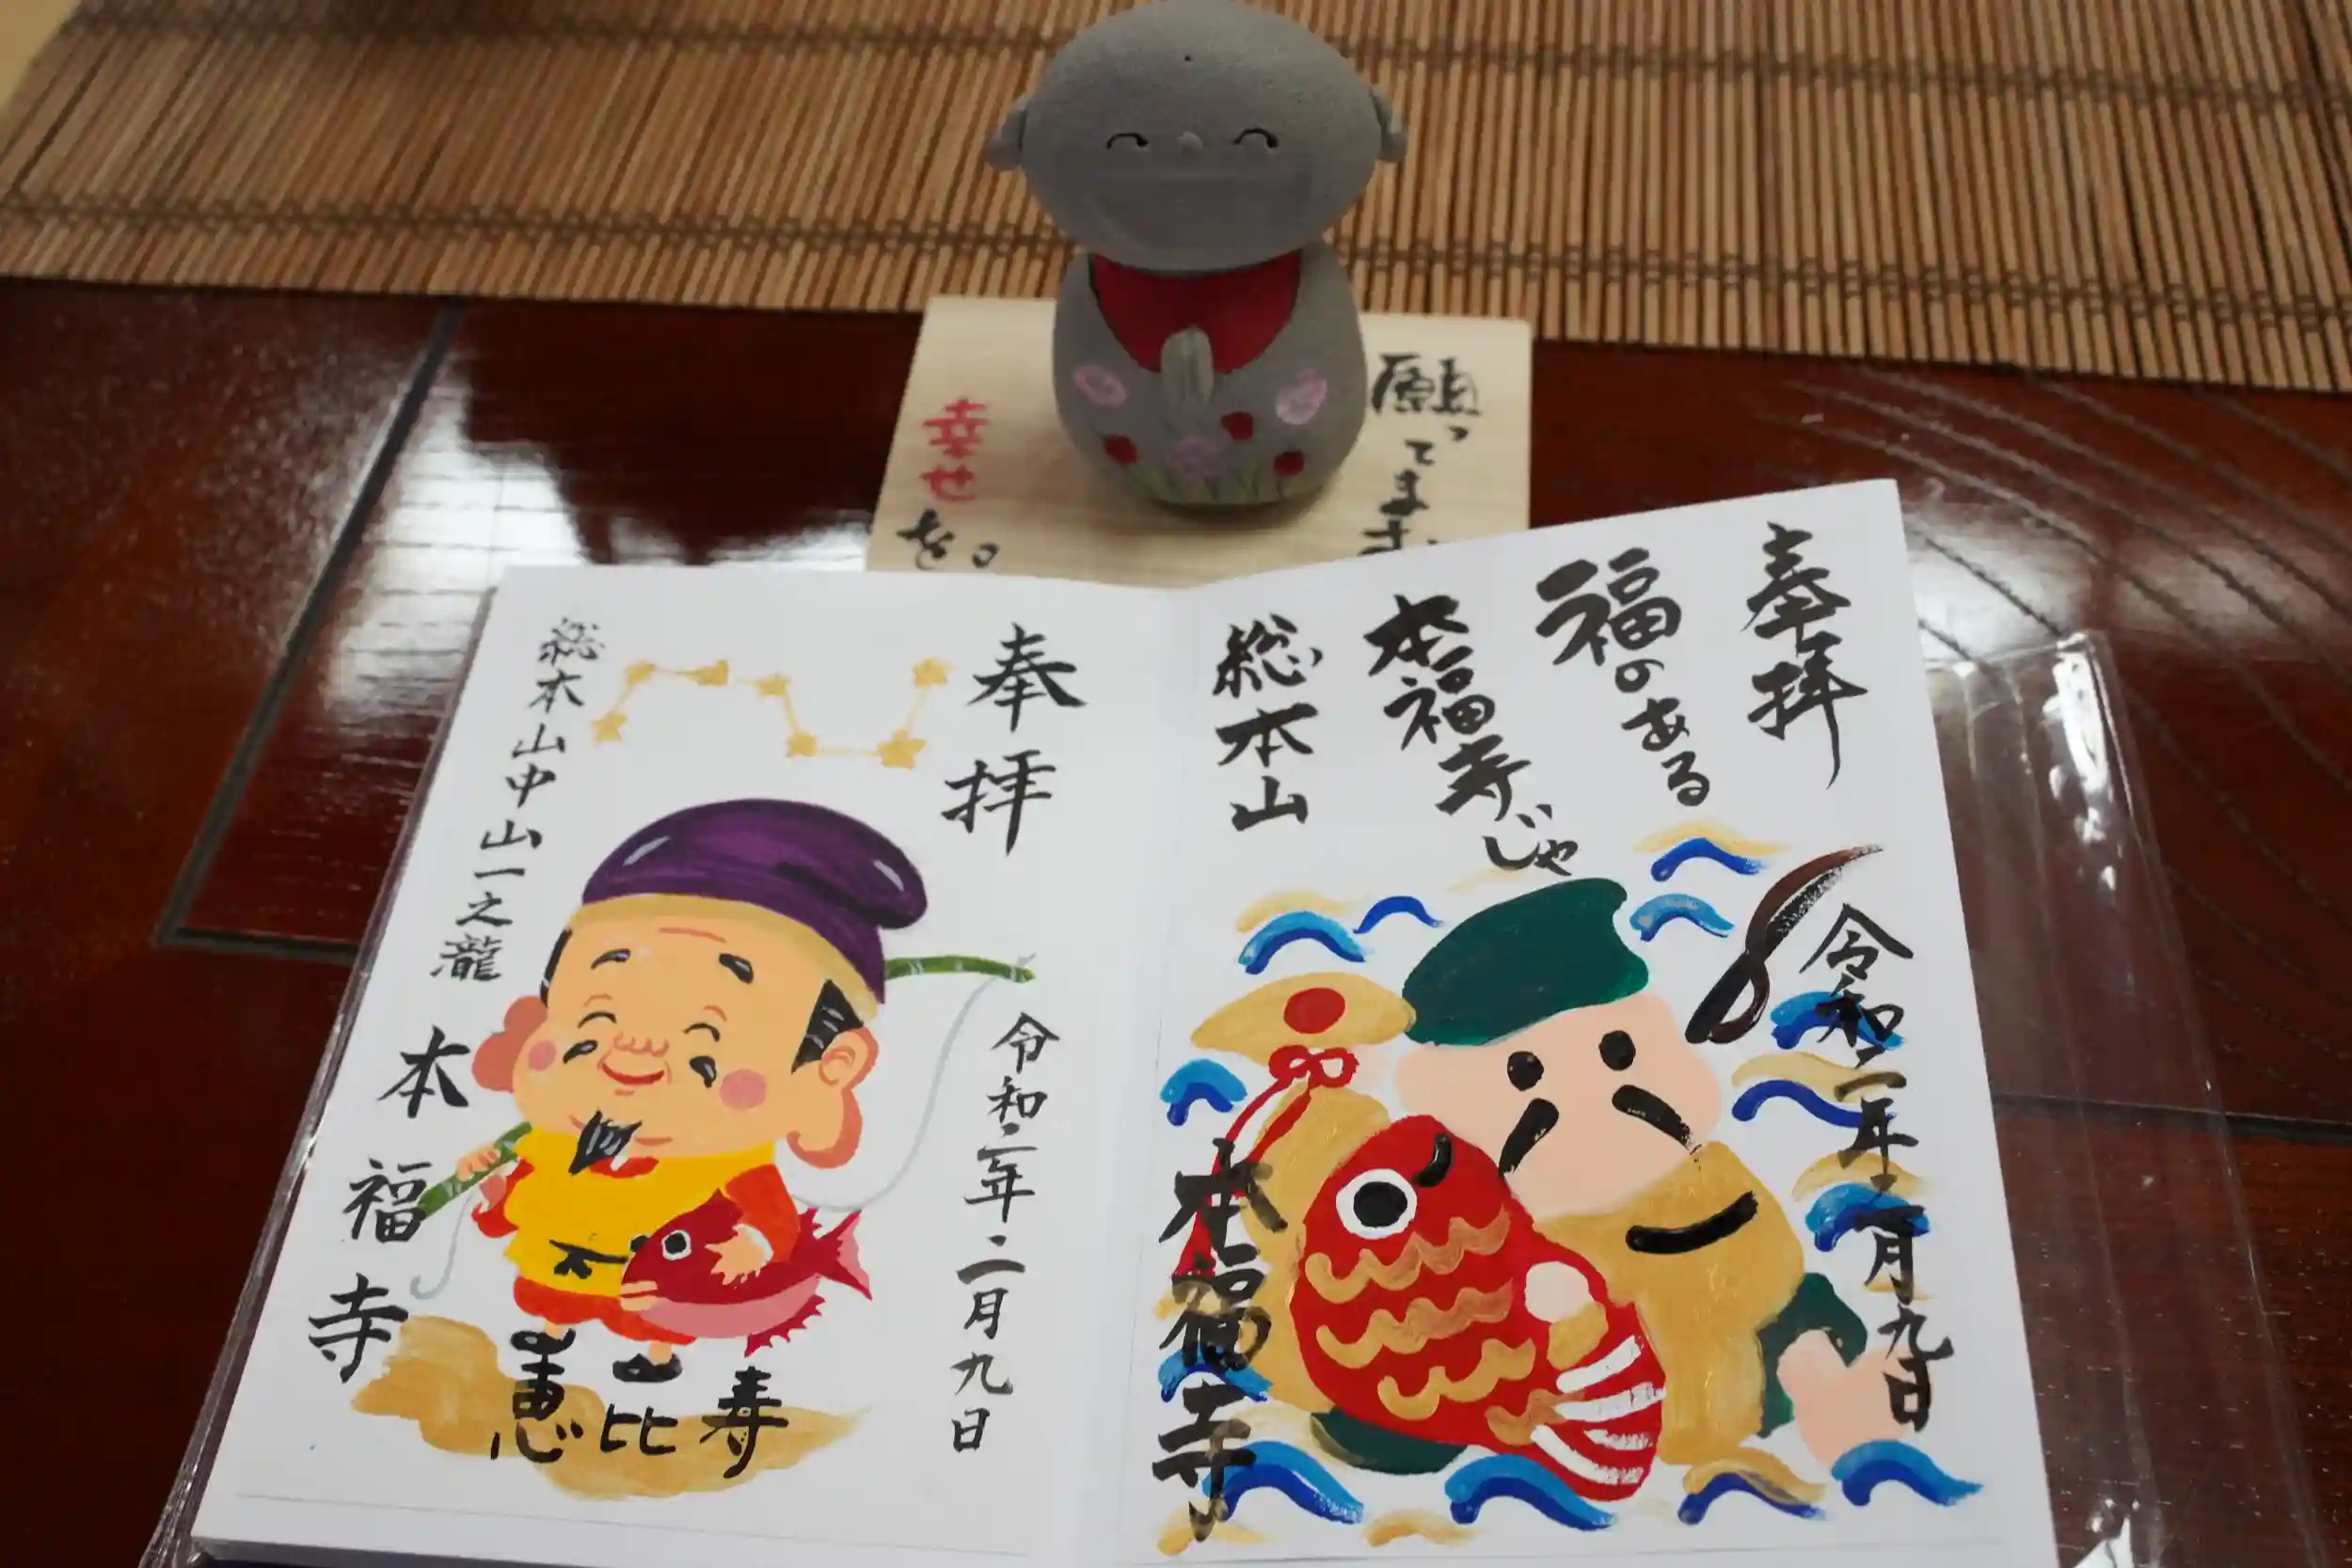 願ってます
幸せを。
奉拝
福のある
本福寺じゃ
総本山
令和二年二月九日
本福寺
奉拝
令和二年二月九日
恵比寿
総本山中山一之瀧
本福寺